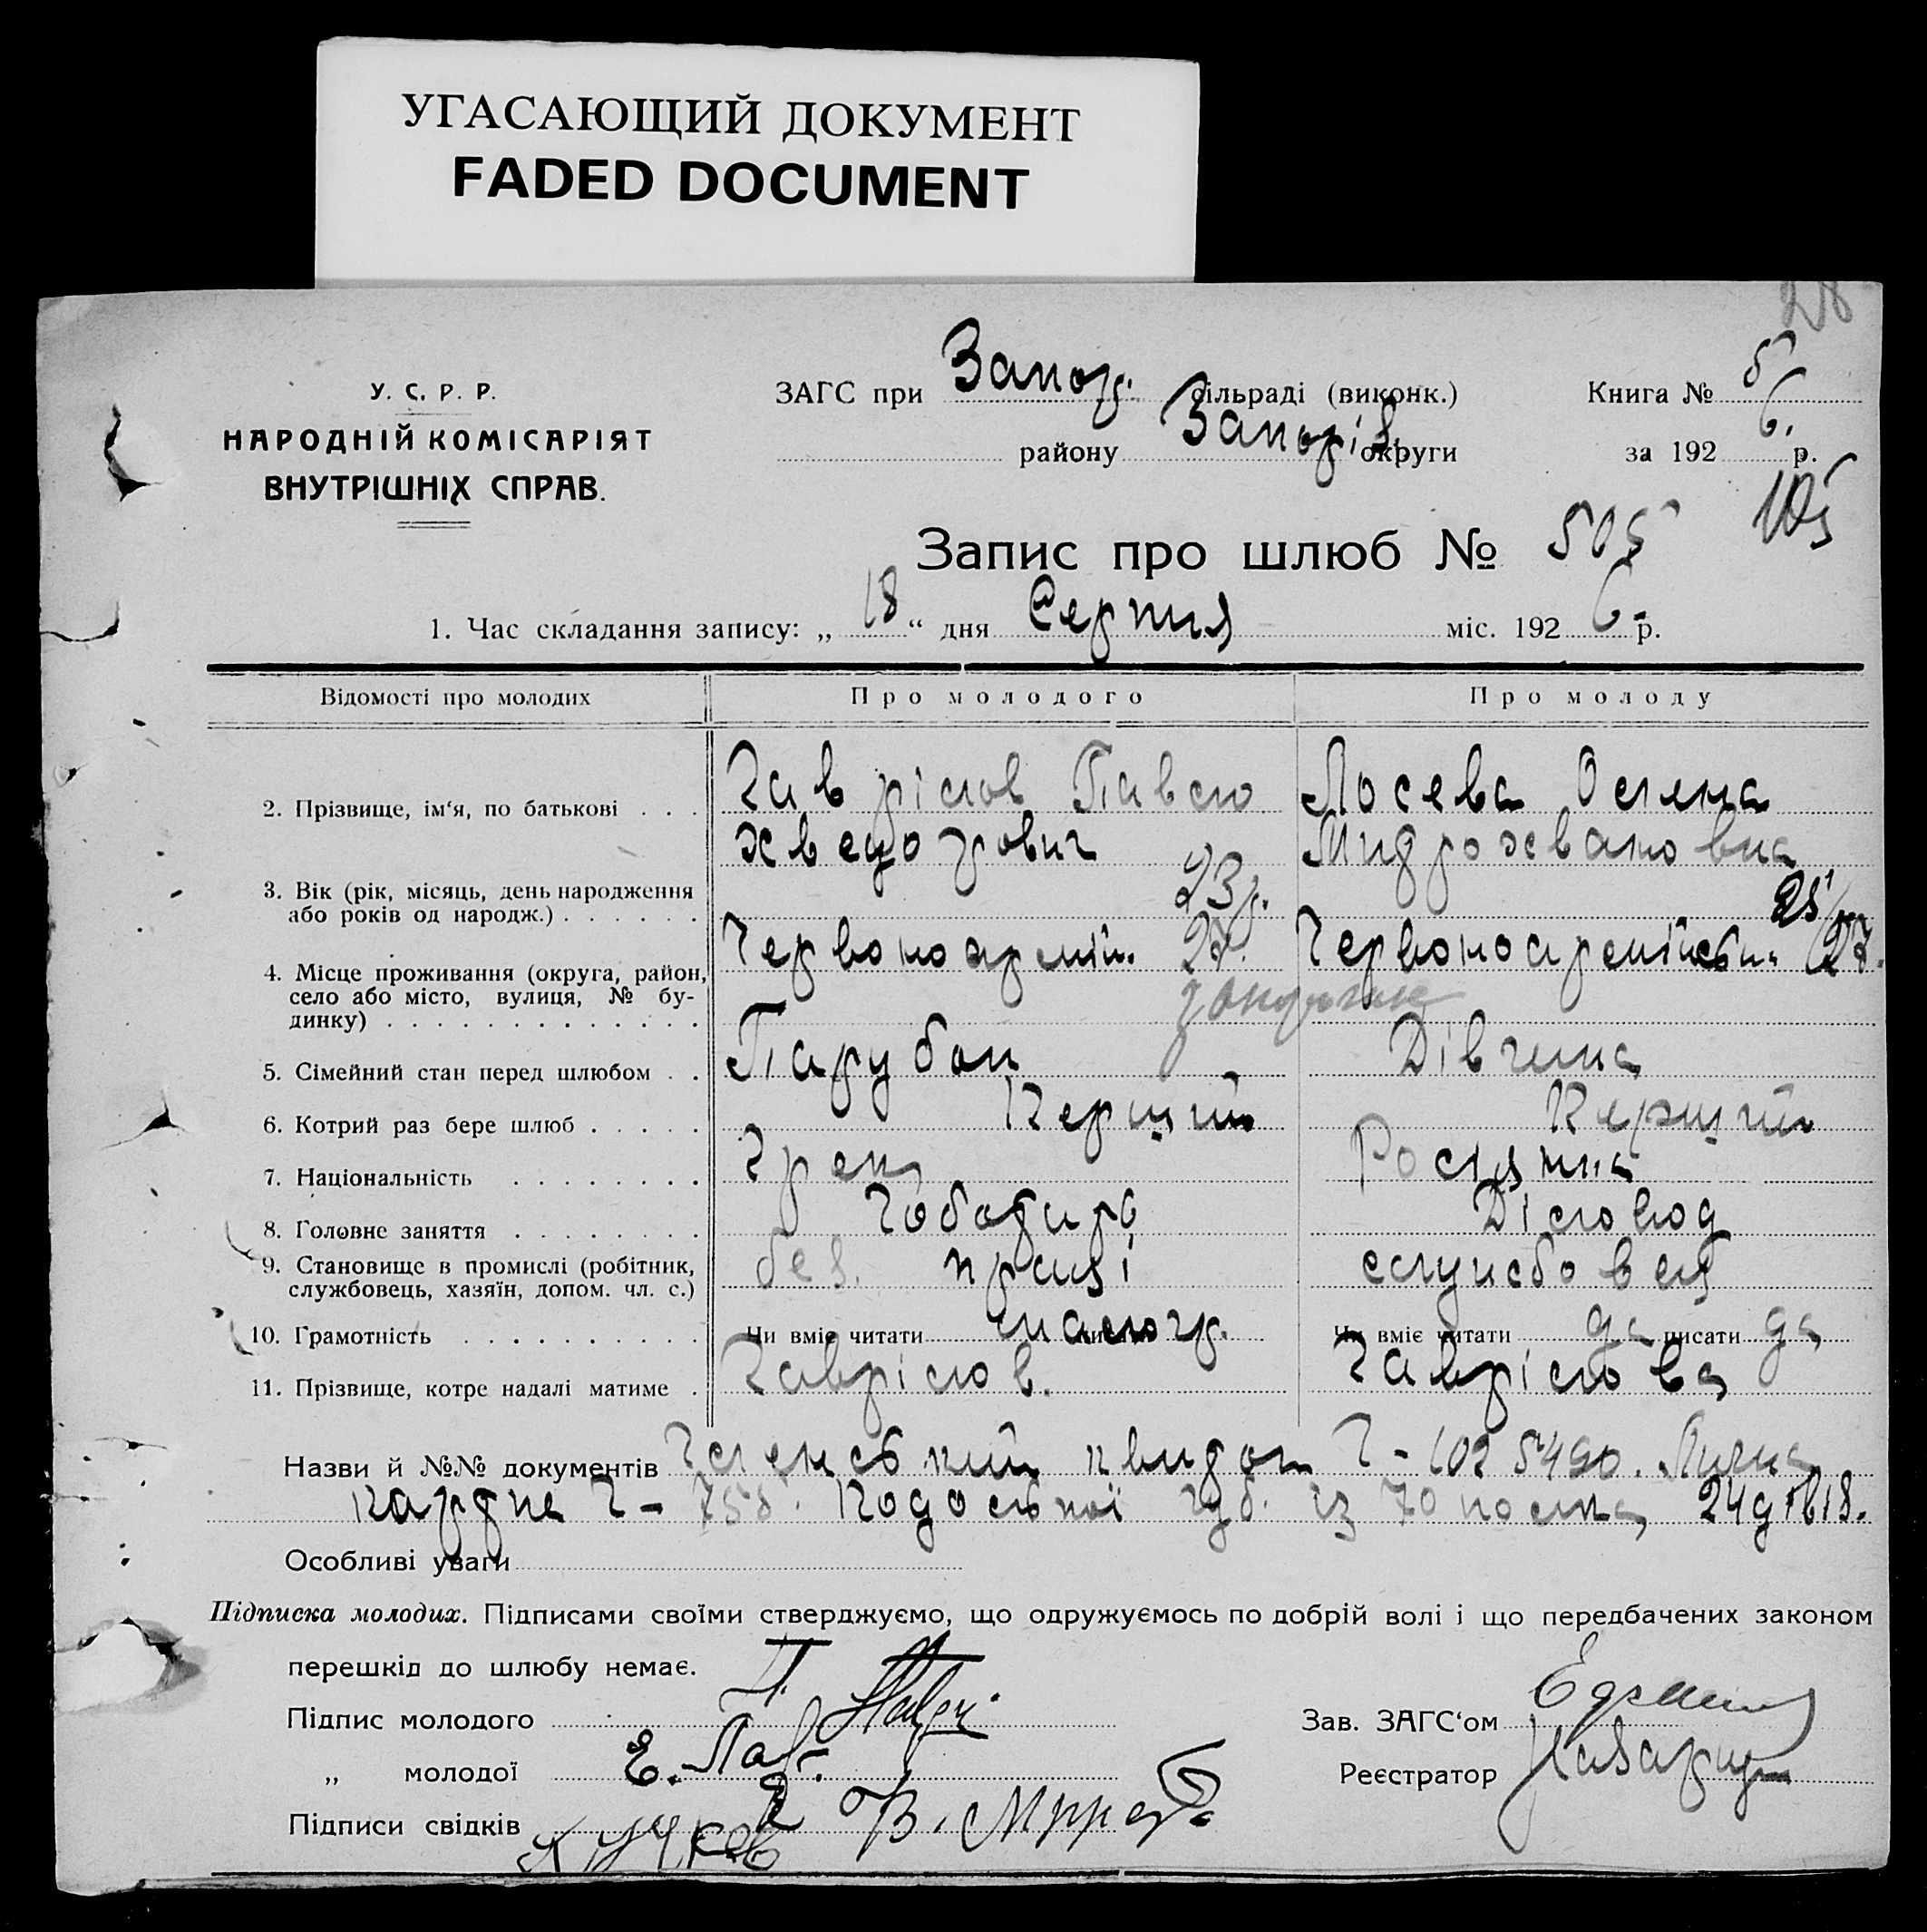 УГАСАЮЩИЙ ДОКУМЕНТ
FADED DOCUMENT
У. С. Р. Р.
НАРОДНІЙ КОМІСАРІЯТ
ВНУТРІШНІХ СПРАВ.
ЗАГС при Запор. сільраді (виконк.)
району Запоріз. округи
Книга № 5
за 192 6. р.
Запис про шлюб № 505
1. Час складання запису: „ 18 “ дня Серпня міс. 192 6 р.
Відомості про молодих Про молодого Про молоду
2. Прізвище, ім'я, по батькові . . . Гаврілов Павло Лосева Олена
хведорович Митрохвановна
3. Вік (рік, місяць, день народження
або років од народж.) . . . . . . 23 р.
4. Місце проживання (округа, район,
село або місто, вулиця, № бу-
динку) . . . . . . . . . . . . . Червоноармій. 27. Червоноармійськ. 27.
5. Сімейний стан перед шлюбом . . Парубок Дівчина
6. Котрий раз бере шлюб . . . . . Перший Перший
7. Національність . . . . . . . . Грек Росіянка
8. Головне заняття . . . . . . . . Чоботарь Діловод
9. Становище в промислі (робітник,
службовець, хазяїн, допом. чл. с.) без. праці службовец
10. Грамотність . . . . . . . . . . Чи вміє читати малогр. Чи вміє читати да писати да
11. Прізвище, котре надалі матиме . Гаврілов. Гаврілова
Назви й №№ документів Членський квиток Ч-1025490. Лична
картка Ч- губ. із полка
Особливі уваги
Підписка молодих. Підписами своїми стверджуємо, що одружуємось по добрій волі і що передбачених законом
перешкід до шлюбу немає.
Підпис молодого
„ молодої
Підписи свідків
Зав. ЗАГС'ом
Реєстратор